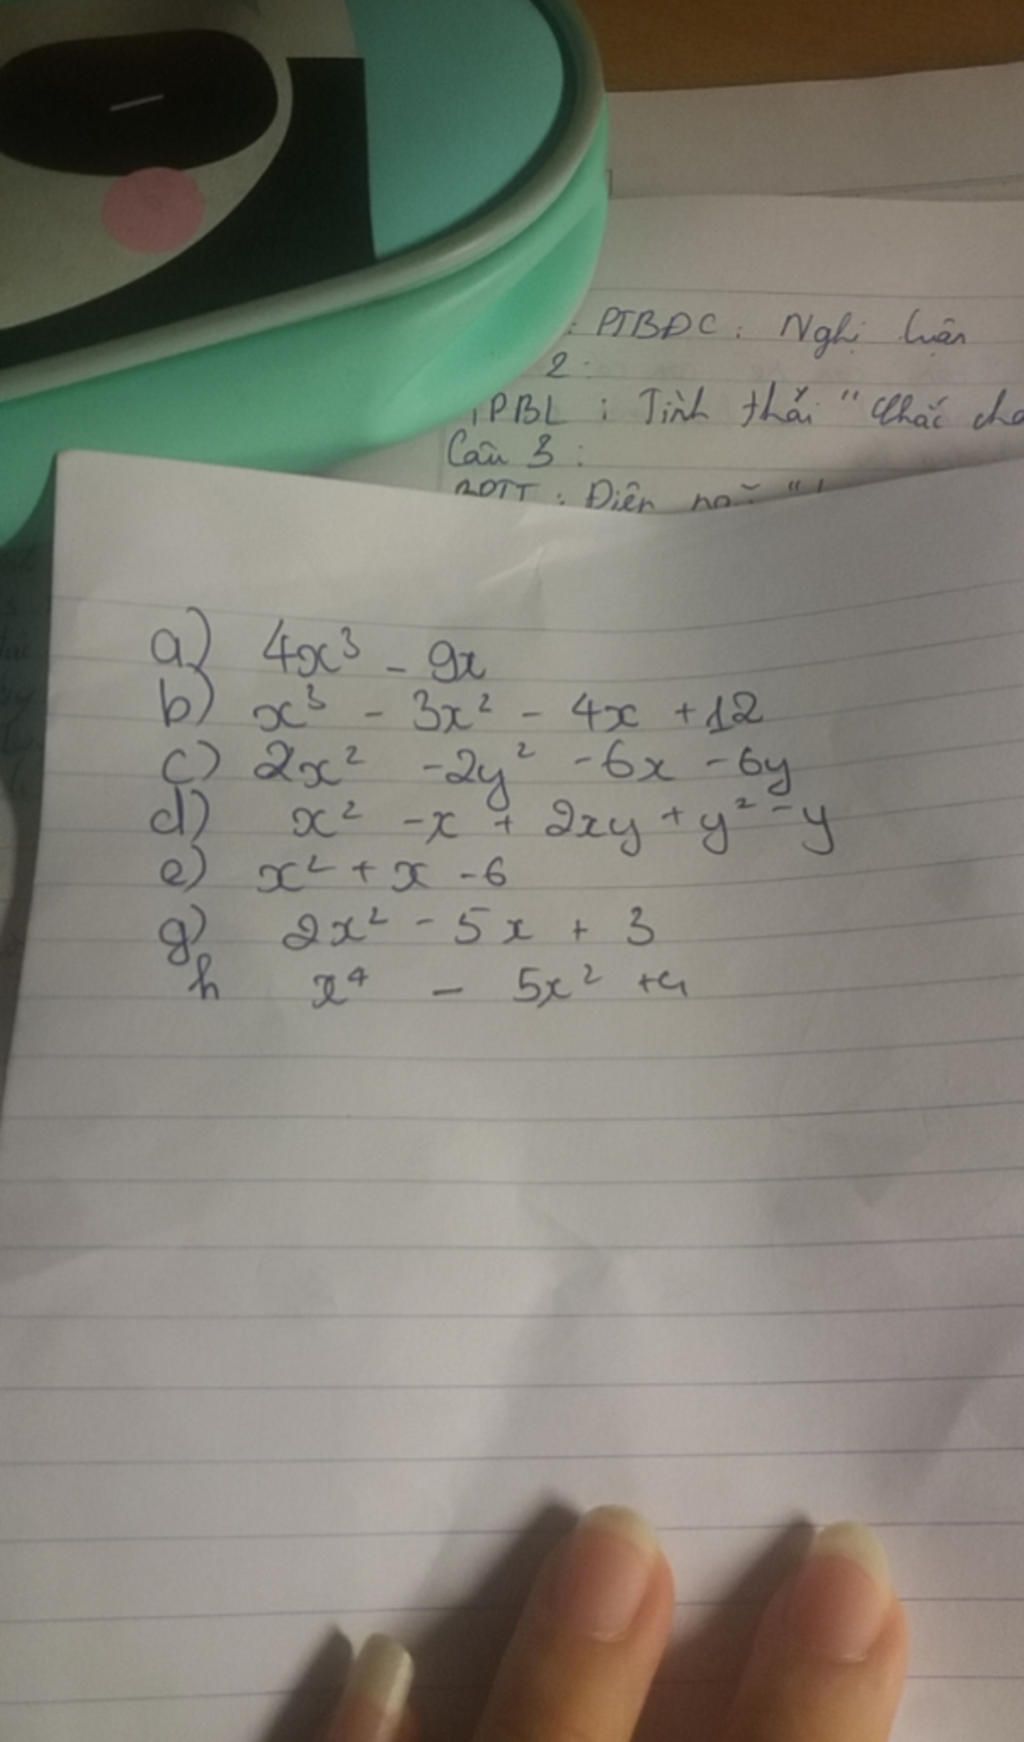 : PTBĐC : Nghị luận
2 :
TPBL : Tình thái "chắc
Câu 3 :
: Điện
a) 4x³ - 9x
b) x³ - 3x² - 4x + 12
c) 2x² - 2y² - 6x - 6y
d) x² - x + 2xy + y² - y
e) x² + x - 6
g) 2x² - 5x + 3
h x⁴ - 5x² + 4